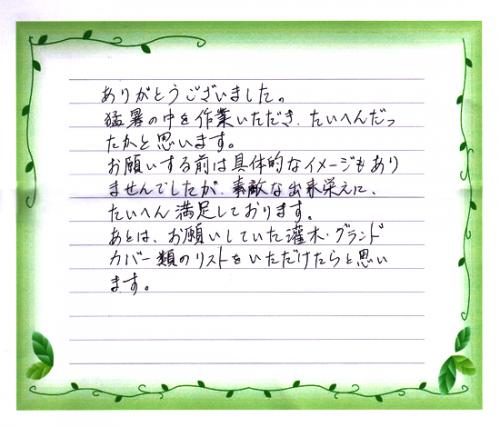 ありがとうございました。
猛暑の中を作業いただき、たいへんだっ
たかと思います。
お願いする前は具体的なイメージもあり
ませんでしたが、素敵な出来栄えに、
たいへん満足しております。
あとは、お願いしていた灌木・グランド
カバー類のリストをいただけたらと思い
ます。